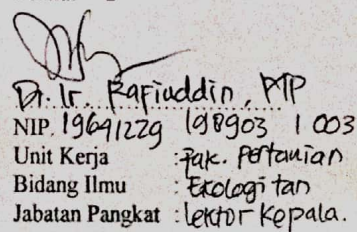 Dr. Ir. Rafiuddin, MP
NIP. 19641229 198903 1 003
Unit Kerja : Fak. Pertanian
Bidang Ilmu : Ekologi tan
Jabatan Pangkat : lektor Kepala.